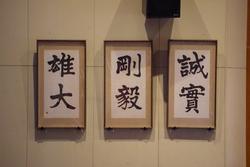 誠實
剛毅
雄大